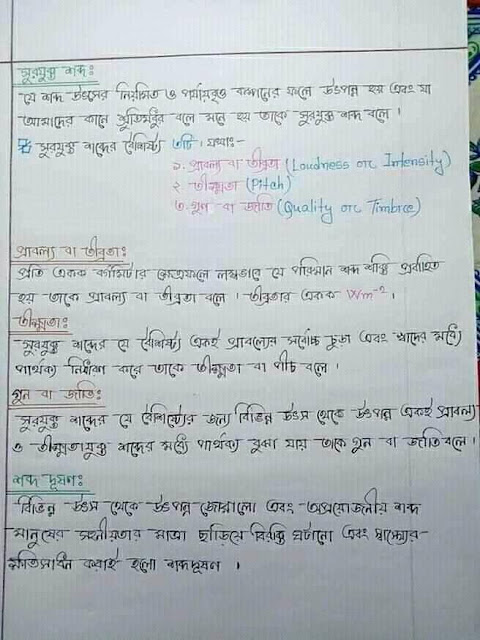 সুরযুক্ত শব্দঃ
যে শব্দ উৎসের নিয়মিত ও পর্যায়বৃত্ত কম্পনের ফলে উৎপন্ন হয় এবং যা
আমাদের কানে শ্রুতিমধুর বলে মনে হয় তাকে সুরযুক্ত শব্দ বলে ।
সুরযুক্ত শব্দের বৈশিষ্ট্য ৩টি । যথাঃ-
১. প্রাবল্য বা তীব্রতা (Loudness or Intensity)
২. তীক্ষ্ণতা (Pitch)
৩. গুন বা জাতি (Quality or Timbre)
প্রাবল্য বা তীব্রতাঃ
প্রতি একক বর্গমিটার ক্ষেত্রফলে লম্বভাবে যে পরিমান শব্দ শক্তি প্রবাহিত
হয় তাকে প্রাবল্য বা তীব্রতা বলে । তীব্রতার একক Wm⁻² ।
তীক্ষ্ণতাঃ
সুরযুক্ত শব্দের যে বৈশিষ্ট্য একই প্রাবল্যের সর্বোচ্চ চূড়া এবং খাদের মধ্যে
পার্থক্য নির্ধারণ করে তাকে তীক্ষ্ণতা বা পীচ বলে ।
গুন বা জাতিঃ
সুরযুক্ত শব্দের যে বৈশিষ্ট্যের জন্য বিভিন্ন উৎস থেকে উৎপন্ন একই প্রাবল্য
ও তীক্ষ্ণতাযুক্ত শব্দের মধ্যে পার্থক্য বুঝা যায় তাকে গুন বা জাতি বলে ।
শব্দ দূষণঃ
বিভিন্ন উৎস থেকে উৎপন্ন জোরালো এবং অপ্রয়োজনীয় শব্দ
মানুষের সহনীয়তার মাত্রা ছাড়িয়ে বিরক্তি ঘটানো এবং স্বাস্থ্যের
ক্ষতিসাধন করাই হলো শব্দদূষণ ।